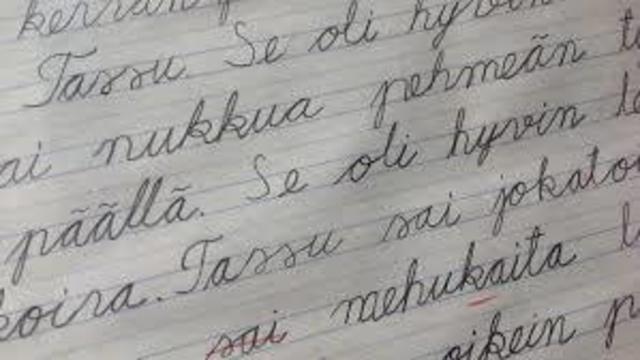 kerran
Tassu. Se oli hyvin
sai nukkua pehmeän
päällä. Se oli hyvin
koira. Tassu sai
sai mehukaita
oikein